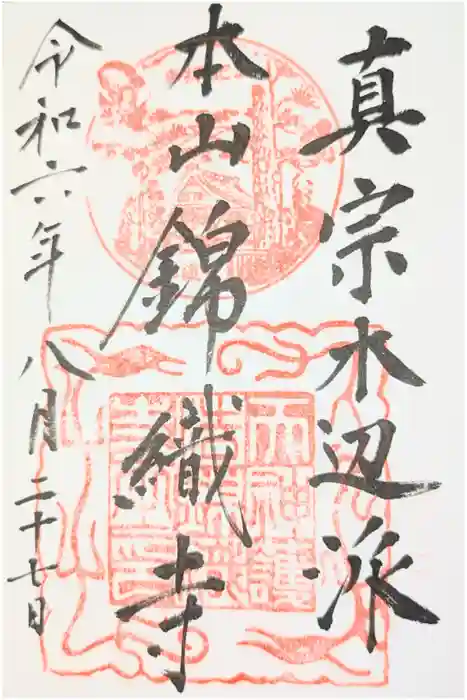 真宗木辺派
本山錦織寺
令和六年八月二十七日